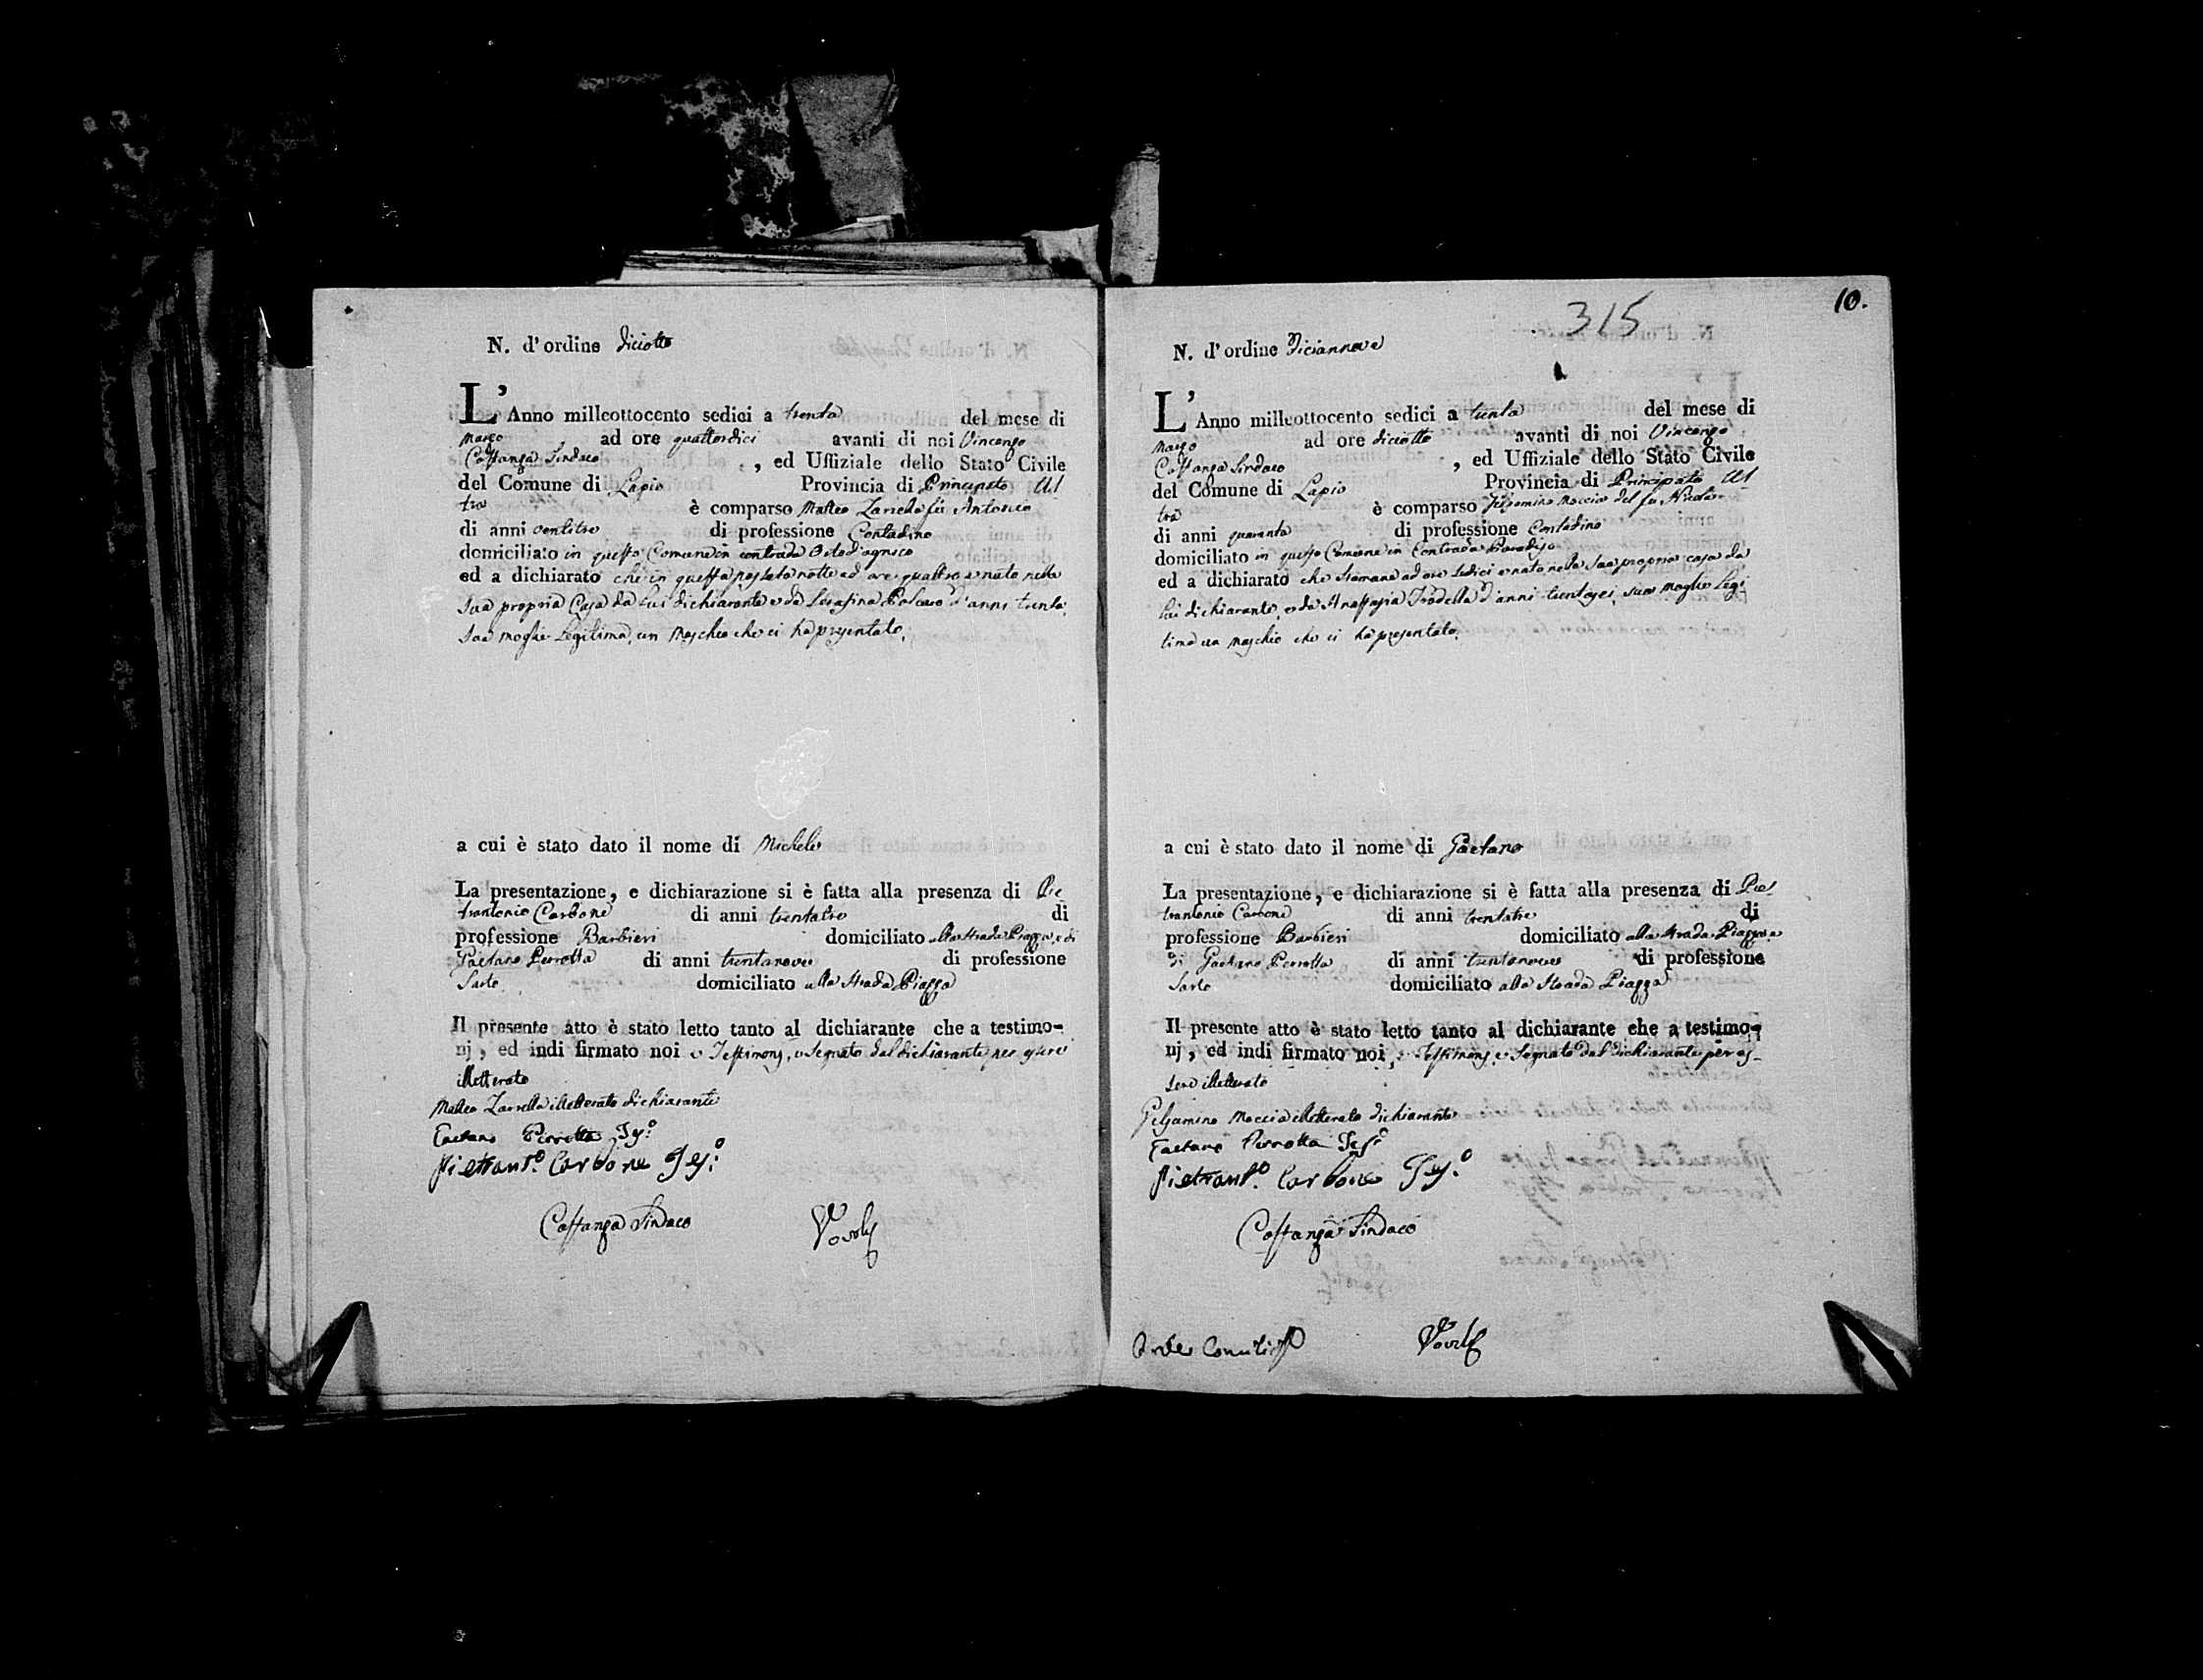 N. d'ordine diciotto
L'Anno milleottocento sedici a trenta del mese di
Marzo ad ore quattordici avanti di noi Vincenzo
Costanza Sindaco , ed Uffiziale dello Stato Civile
del Comune di Lapio Provincia di Principato Ul
tra è comparso Matteo Zarrella fu Antonio
di anni ventitre di professione Contadino
domiciliato in questo Comune in contrada
ed a dichiarato che in questa passata notte ad ore quattro è nato nella
sua propria Casa da lui dichiarante e da Serafina d'anni trenta
sua moglie legitima, un Maschio che ci ha presentato.
a cui è stato dato il nome di Michele
La presentazione, e dichiarazione si è fatta alla presenza di Pie
trantonio Carbone di anni trentatre di
professione Barbieri domiciliato alla Strada Piazza, e di
Gaetano Perrotta di anni trentanove di professione
Sarto domiciliato alla Strada Piazza
Il presente atto è stato letto tanto al dichiarante che a testimo-
nj, ed indi firmato noi e Testimonj, e segnato dal dichiarante per essere
illetterato
Matteo Zarrella illetterato dichiarante
Gaetano Perrotta Tes:º
Pietrant.º Carbone Tes:º
Costanza Sindaco
315
10.
N. d'ordine Diciannove
L'Anno milleottocento sedici a trenta del mese di
Marzo ad ore diciotto avanti di noi Vincenzo
Costanza Sindaco , ed Uffiziale dello Stato Civile
del Comune di Lapio Provincia di Principato Ul
tra è comparso Gelsomino Moccia del fu Nicola
di anni quaranta di professione Contadino
domiciliato in questo Comune in Contrada Paradiso
ed a dichiarato che stamane ad ore sedici è nato nella sua propria casa da
lui dichiarante, e da Anastasia d'anni trentasei, sua moglie legi-
tima un maschio che ci ha presentato.
a cui è stato dato il nome di Gaetano
La presentazione, e dichiarazione si è fatta alla presenza di Pie
trantonio Carbone di anni trentatre di
professione Barbieri domiciliato alla Strada Piazza e
di Gaetano Perrotta di anni trentanove di professione
Sarto domiciliato alla Strada Piazza
Il presente atto è stato letto tanto al dichiarante che a testimo-
nj, ed indi firmato noi, Testimonj e segnato dal dichiarante per es-
sere illetterato
Gelsamino Moccia illetterato dichiarante
Gaetano Perrotta Tesº
Pietrant.º Carbone Tes.º
Costanza Sindaco